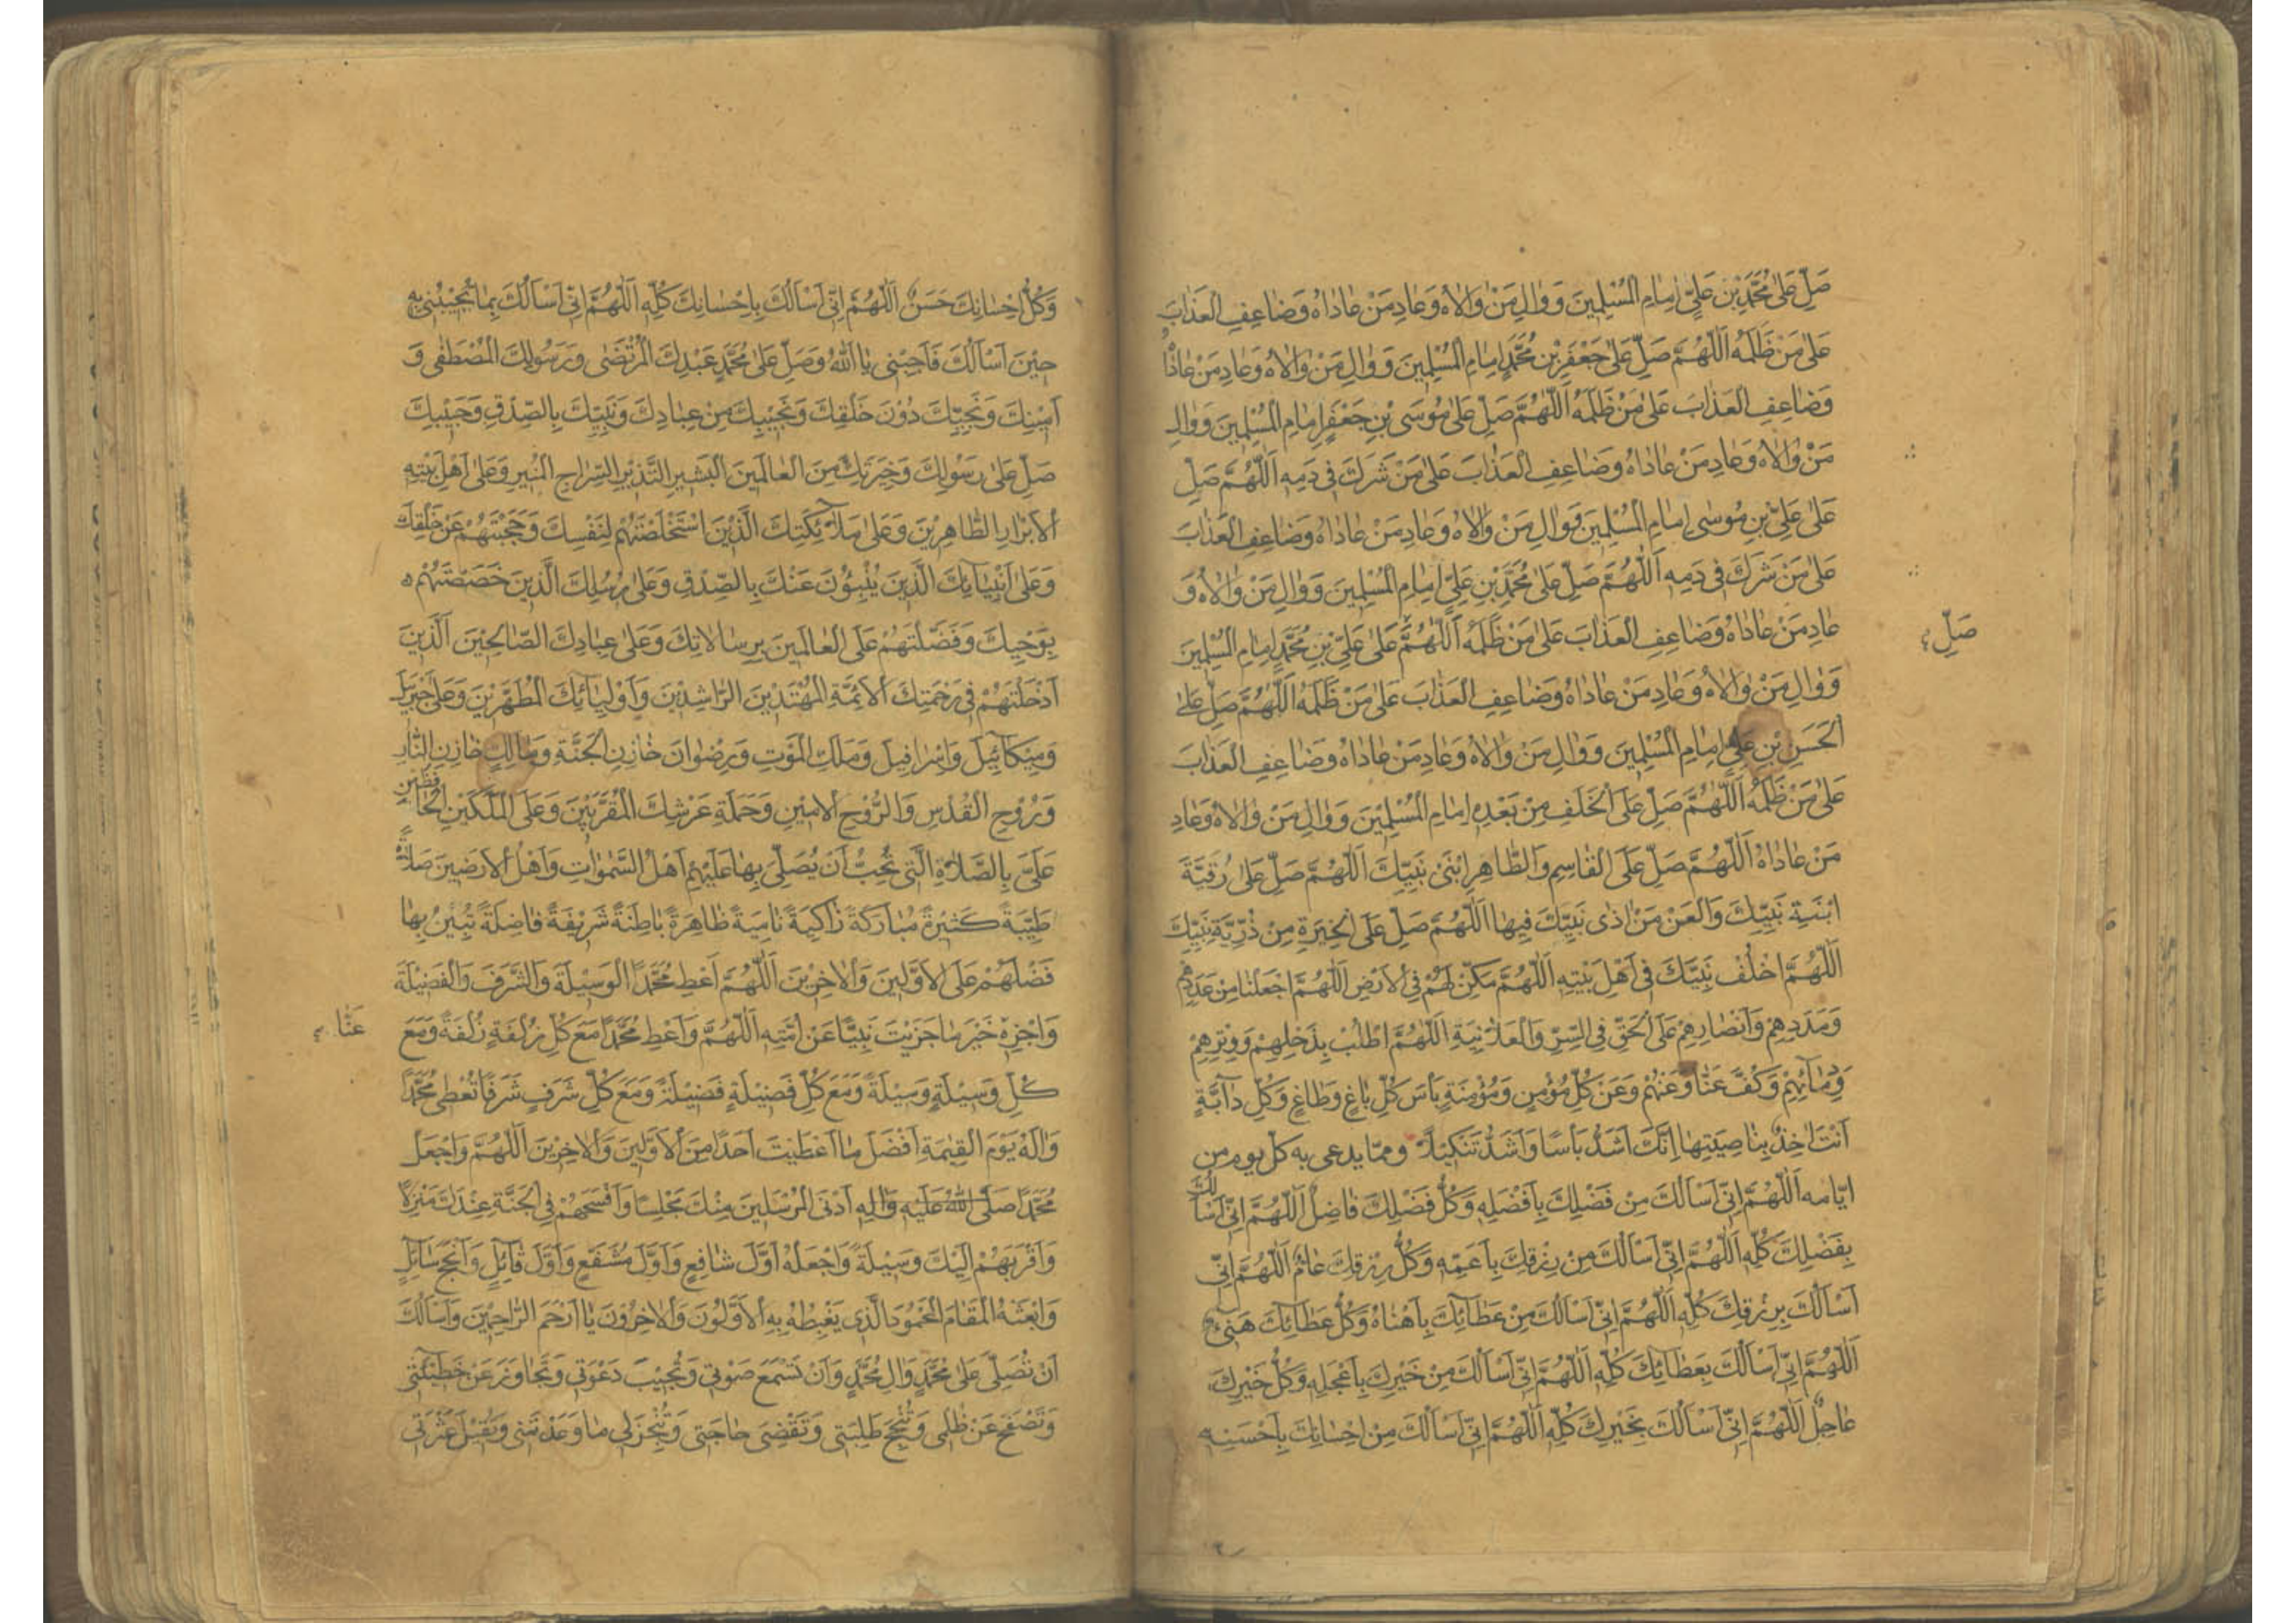 صَلِّ عَلىٰ مُحَمَّدِ بْنِ عَلِيٍّ اِمٰامِ الْمُسْلِمينَ وَوٰالِ مَنْ وٰالاٰهُ وَعٰادِ مَنْ عٰادٰاهُ وَضٰاعِفِ الْعَذٰابَ
عَلىٰ مَنْ ظَلَمَهُ اَللّٰهُمَّ صَلِّ عَلىٰ جَعْفَرِ بْنِ مُحَمَّدٍ اِمٰامِ الْمُسْلِمينَ وَوٰالِ مَنْ وٰالاٰهُ وَعٰادِ مَنْ عٰادٰاهُ
وَضٰاعِفِ الْعَذٰابَ عَلىٰ مَنْ ظَلَمَهُ اَللّٰهُمَّ صَلِّ عَلىٰ مُوسَى بْنِ جَعْفَرٍ اِمٰامِ الْمُسْلِمينَ وَوٰالِ
مَنْ وٰالاٰهُ وَعٰادِ مَنْ عٰادٰاهُ وَضٰاعِفِ الْعَذٰابَ عَلىٰ مَنْ شَرَكَ فى دَمِهِ اَللّٰهُمَّ صَلِّ
عَلىٰ عَلِيِّ بْنِ مُوسىٰ اِمٰامِ الْمُسْلِمينَ وَوٰالِ مَنْ وٰالاٰهُ وَعٰادِ مَنْ عٰادٰاهُ وَضٰاعِفِ الْعَذٰابَ
عَلىٰ مَنْ شَرَكَ فى دَمِهِ اَللّٰهُمَّ صَلِّ عَلىٰ مُحَمَّدِ بْنِ عَلِيٍّ اِمٰامِ الْمُسْلِمينَ وَوٰالِ مَنْ وٰالاٰهُ وَ
عٰادِ مَنْ عٰادٰاهُ وَضٰاعِفِ الْعَذٰابَ عَلىٰ مَنْ ظَلَمَهُ اَللّٰهُمَّ عَلىٰ عَلِيِّ بْنِ مُحَمَّدٍ اِمٰامِ الْمُسْلِمينَ
صَلِّ
وَوٰالِ مَنْ وٰالاٰهُ وَعٰادِ مَنْ عٰادٰاهُ وَضٰاعِفِ الْعَذٰابَ عَلىٰ مَنْ ظَلَمَهُ اَللّٰهُمَّ صَلِّ عَلىٰ
الْحَسَنِ بْنِ عَلِيٍّ اِمٰامِ الْمُسْلِمينَ وَوٰالِ مَنْ وٰالاٰهُ وَعٰادِ مَنْ عٰادٰاهُ وَضٰاعِفِ الْعَذٰابَ
عَلىٰ مَنْ ظَلَمَهُ اَللّٰهُمَّ صَلِّ عَلَى الْخَلَفِ مِنْ بَعْدِهِ اِمٰامِ الْمُسْلِمينَ وَوٰالِ مَنْ وٰالاٰهُ وَعٰادِ
مَنْ عٰادٰاهُ اَللّٰهُمَّ صَلِّ عَلَى الْقٰاسِمِ وَالطّٰاهِرِ ابْنَىْ نَبِيِّكَ اَللّٰهُمَّ صَلِّ عَلىٰ رُقَيَّةَ
ابْنَةِ نَبِيِّكَ وَالْعَنْ مَنْ اٰذٰى نَبِيَّكَ فيهٰا اَللّٰهُمَّ صَلِّ عَلَى الْخِيَرَةِ مِنْ ذُرِّيَّةِ نَبِيِّكَ
اَللّٰهُمَّ اخْلُفْ نَبِيَّكَ فى اَهْلِ بَيْتِهِ اَللّٰهُمَّ مَكِّنْ لَهُمْ فِى الْاَرْضِ اَللّٰهُمَّ اجْعَلْنٰا مِنْ عَدَدِهِمْ
وَمَدَدِهِمْ وَاَنْصٰارِهِمْ عَلَى الْحَقِّ فِى السِّرِّ وَالْعَلاٰنِيَةِ اَللّٰهُمَّ اطْلُبْ بِذَحْلِهِمْ وَوِتْرِهِمْ
وَدِمٰآئِهِمْ وَكُفَّ عَنّٰا وَعَنْهُمْ وَعَنْ كُلِّ مُؤْمِنٍ وَمُؤْمِنَةٍ بَأْسَ كُلِّ بٰاغٍ وَطٰاغٍ وَكُلِّ دٰآبَّةٍ
اَنْتَ اٰخِذٌ بِنٰاصِيَتِهٰا اِنَّكَ اَشَدُّ بَأْسًا وَاَشَدُّ تَنْكيلاً وممّا يدعى به كل يوم من
ايّامه اَللّٰهُمَّ اِنّى اَسْاَلُكَ مِنْ فَضْلِكَ بِاَفْضَلِهِ وَكُلُّ فَضْلِكَ فٰاضِلٌ اَللّٰهُمَّ اِنّى اَسْاَلُكَ
بِفَضْلِكَ كُلِّهِ اَللّٰهُمَّ اِنّى اَسْاَلُكَ مِنْ رِزْقِكَ بِاَعَمِّهِ وَكُلُّ رِزْقِكَ عٰامٌّ اَللّٰهُمَّ اِنّى
اَسْاَلُكَ بِرِزْقِكَ كُلِّهِ اَللّٰهُمَّ اِنّى اَسْاَلُكَ مِنْ عَطٰآئِكَ بِاَهْنٰاهُ وَكُلُّ عَطٰآئِكَ هَنىءٌ
اَللّٰهُمَّ اِنّى اَسْاَلُكَ بِعَطٰآئِكَ كُلِّهِ اَللّٰهُمَّ اِنّى اَسْاَلُكَ مِنْ خَيْرِكَ بِاَعْجَلِهِ وَكُلُّ خَيْرِكَ
عٰاجِلٌ اَللّٰهُمَّ اِنّى اَسْاَلُكَ بِخَيْرِكَ كُلِّهِ اَللّٰهُمَّ اِنّى اَسْاَلُكَ مِنْ اِحْسٰانِكَ بِاَحْسَنِهِ
وَكُلُّ اِحْسٰانِكَ حَسَنٌ اَللّٰهُمَّ اِنّى اَسْاَلُكَ بِاِحْسٰانِكَ كُلِّهِ اَللّٰهُمَّ اِنّى اَسْاَلُكَ بِمٰا تُجيبُنى بِهِ
حينَ اَسْاَلُكَ فَاَجِبْنى يٰا اَللّٰهُ وَصَلِّ عَلىٰ مُحَمَّدٍ عَبْدِكَ الْمُرْتَضىٰ وَرَسُولِكَ الْمُصْطَفىٰ وَ
اَمينِكَ وَنَجِيِّكَ دُوْنَ خَلْقِكَ وَنَجيبِكَ مِنْ عِبٰادِكَ وَنَبِيِّكَ بِالصِّدْقِ وَحَبيبِكَ
صَلِّ عَلىٰ رَسُولِكَ وَخِيَرَتِكَ مِنَ الْعٰالَمينَ الْبَشيرِ النَّذيرِ السِّرٰاجِ الْمُنيرِ وَعَلىٰ اَهْلِ بَيْتِهِ
الْاَبْرٰارِ الطّٰاهِرينَ وَعَلىٰ مَلاٰئِكَتِكَ الَّذينَ اسْتَخْلَصْتَهُمْ لِنَفْسِكَ وَحَجَبْتَهُمْ عَنْ خَلْقِكَ
وَعَلىٰ اَنْبِيٰآئِكَ الَّذينَ يُنْبِئُونَ عَنْكَ بِالصِّدْقِ وَعَلىٰ رُسُلِكَ الَّذينَ خَصَصْتَهُمْ
بِوَحْيِكَ وَفَضَّلْتَهُمْ عَلَى الْعٰالَمينَ بِرِسٰالاٰتِكَ وَعَلىٰ عِبٰادِكَ الصّٰالِحينَ الَّذينَ
اَدْخَلْتَهُمْ فى رَحْمَتِكَ الْاَئِمَّةِ الْمُهْتَدينَ الرّٰاشِدينَ وَاَوْلِيٰآئِكَ الْمُطَهَّرينَ وَعَلىٰ جَبْرَئيلَ
وَميكٰآئيلَ وَاِسْرٰافيلَ وَمَلَكِ الْمَوْتِ وَرِضْوٰانَ خٰازِنِ الْجَنَّةِ وَمٰالِكٍ خٰازِنِ النّٰارِ
وَرُوْحِ الْقُدُسِ وَالرُّوْحِ الْاَمينِ وَحَمَلَةِ عَرْشِكَ الْمُقَرَّبينَ وَعَلَى الْمَلَكَيْنِ الْحٰافِظَيْنِ
عَلَيَّ بِالصَّلاٰةِ الَّتى تُحِبُّ اَنْ يُصَلِّيَ بِهٰا عَلَيْهِمْ اَهْلُ السَّمٰوٰاتِ وَاَهْلُ الْاَرَضينَ صَلاٰةً
طَيِّبَةً كَثيرَةً مُبٰارَكَةً زٰاكِيَةً نٰامِيَةً ظٰاهِرَةً بٰاطِنَةً شَريفَةً فٰاضِلَةً تُبَيِّنُ بِهٰا
فَضْلَهُمْ عَلَى الْاَوَّلينَ وَالْاٰخِرينَ اَللّٰهُمَّ اَعْطِ مُحَمَّدًا الْوَسيلَةَ وَالشَّرَفَ وَالْفَضيلَةَ
وَاجْزِهِ خَيْرَ مٰا جَزَيْتَ نَبِيًّا عَنْ اُمَّتِهِ اَللّٰهُمَّ وَاَعْطِ مُحَمَّدًا مَعَ كُلِّ زُلْفَةٍ زُلْفَةً وَمَعَ
عَنّٰا
كُلِّ وَسيلَةٍ وَسيلَةً وَمَعَ كُلِّ فَضيلَةٍ فَضيلَةً وَمَعَ كُلِّ شَرَفٍ شَرَفًا تُعْطى مُحَمَّدًا
وَاٰلَهُ يَوْمَ الْقِيٰمَةِ اَفْضَلَ مٰا اَعْطَيْتَ اَحَدًا مِنَ الْاَوَّلينَ وَالْاٰخِرينَ اَللّٰهُمَّ وَاجْعَلْ
مُحَمَّدًا صَلَّى اللّٰهُ عَلَيْهِ وَاٰلِهِ اَدْنَى الْمُرْسَلينَ مِنْكَ مَجْلِسًا وَاَفْسَحَهُمْ فِى الْجَنَّةِ عِنْدَكَ مَنْزِلاً
وَاَقْرَبَهُمْ اِلَيْكَ وَسيلَةً وَاجْعَلْهُ اَوَّلَ شٰافِعٍ وَاَوَّلَ مُشَفَّعٍ وَاَوَّلَ قٰآئِلٍ وَاَنْجَحَ سٰآئِلٍ
وَابْعَثْهُ الْمَقٰامَ الْمَحْمُودَ الَّذى يَغْبِطُهُ بِهِ الْاَوَّلُونَ وَالْاٰخِرُونَ يٰا اَرْحَمَ الرّٰاحِمينَ وَاَسْاَلُكَ
اَنْ تُصَلِّىَ عَلىٰ مُحَمَّدٍ وَاٰلِ مُحَمَّدٍ وَاَنْ تَسْمَعَ صَوْتى وَتُجيبَ دَعْوَتى وَتَجٰاوَزَ عَنْ خَطيئَتى
وَتَصْفَحَ عَنْ ظُلْمى وَتُنْجِحَ طَلِبَتى وَتَقْضِىَ حٰاجَتى وَتُنْجِزَ لى مٰا وَعَدْتَنى وَتُقيلَ عَثْرَتى